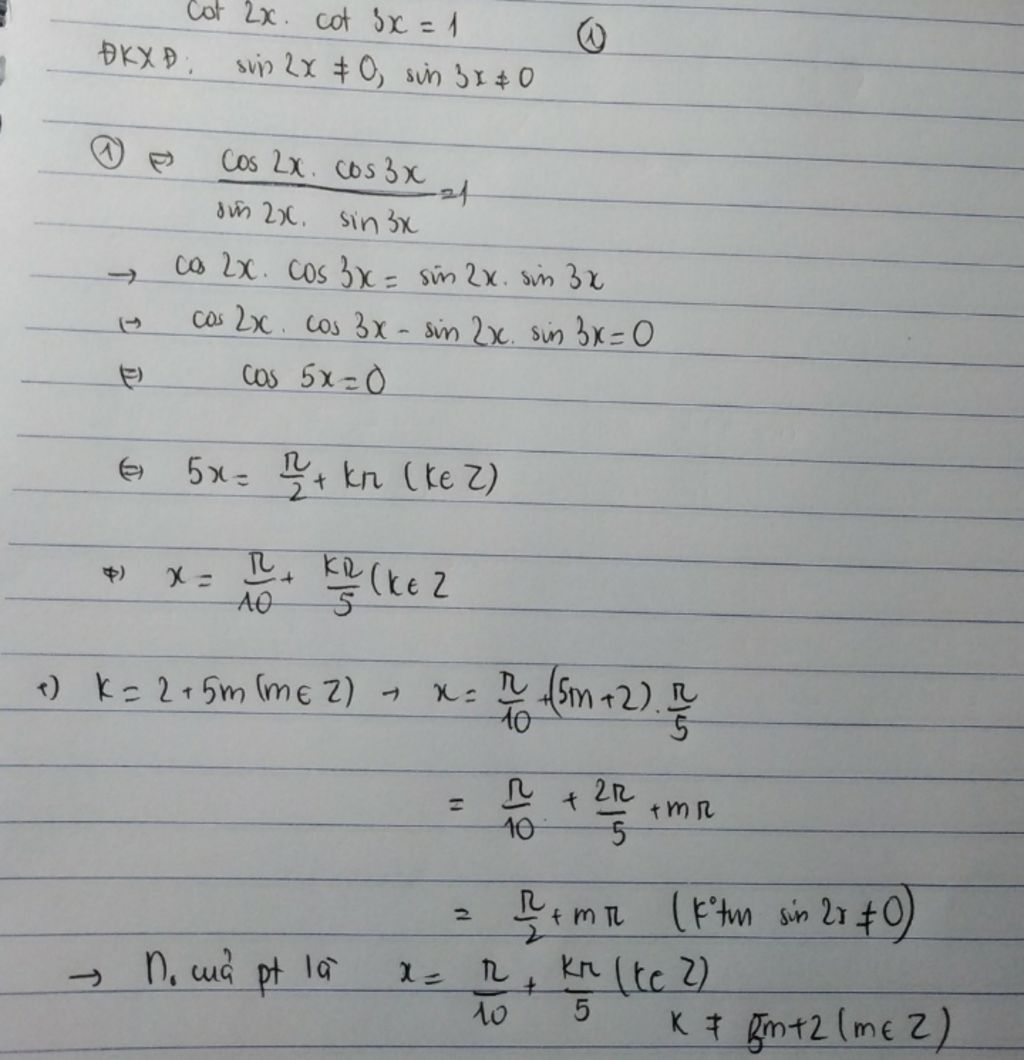 cot 2x. cot 3x = 1 ①
ĐKXĐ: sin 2x ≠ 0, sin 3x ≠ 0
① ⇔ cos 2x. cos 3x / sin 2x. sin 3x = 1
→ cos 2x. cos 3x = sin 2x. sin 3x
↔ cos 2x. cos 3x - sin 2x. sin 3x = 0
⇔ cos 5x = 0
⇔ 5x = π/2 + kπ (k ∈ Z)
⇔ x = π/10 + kπ/5 (k ∈ Z
+) k = 2 + 5m (m ∈ Z) → x = π/10 + (5m + 2). π/5
= π/10 + 2π/5 + mπ
= π/2 + mπ (k° tm sin 2x ≠ 0)
→ n. cuả pt là x = π/10 + kπ/5 (k ∈ Z)
k ≠ 5m + 2 (m ∈ Z)